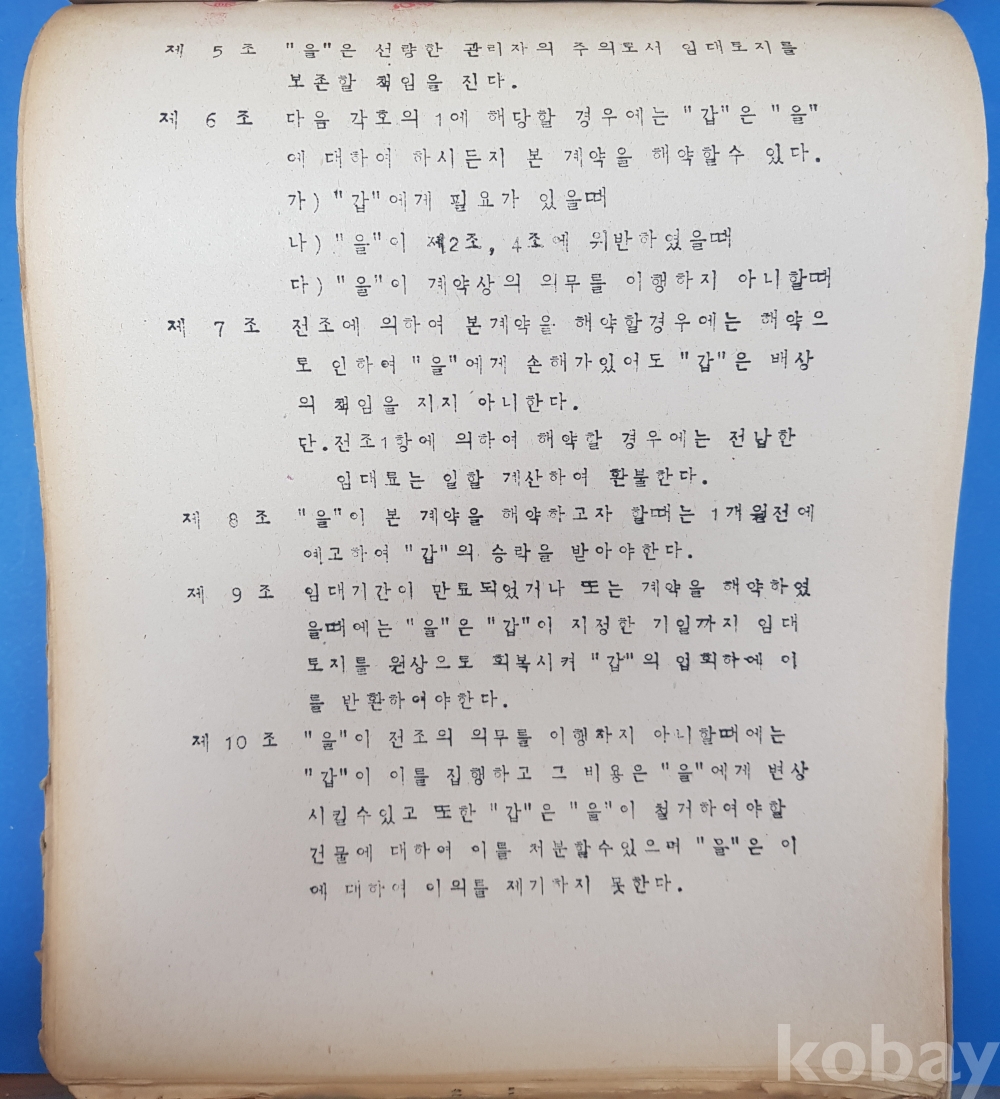 제 5 조 "을"은 선량한 관리자의 주의로서 임대토지를
보존할 책임을 진다.
제 6 조 다음 각호의 1에 해당할 경우에는 "갑"은 "을"
에 대하여 하시든지 본 계약을 해약할수 있다.
가) "갑"에게 필요가 있을때
나) "을"이 제2조, 4조에 위반하였을때
다) "을"이 계약상의 의무를 이행하지 아니할때
제 7 조 전조에 의하여 본계약을 해약할경우에는 해약으
로 인하여 "을"에게 손해가있어도 "갑"은 배상
의 책임을 지지 아니한다.
단.전조1항에 의하여 해약할 경우에는 전납한
임대료는 일할 계산하여 환불한다.
제 8 조 "을"이 본 계약을 해약하고자 할때는 1개월전에
예고하여 "갑"의 승락을 받아야한다.
제 9 조 임대기간이 만료되었거나 또는 계약을 해약하였
을때에는 "을"은 "갑"이 지정한 기일까지 임대
토지를 원상으로 회복시켜 "갑"의 입회하에 이
를 반환하여야한다.
제 10 조 "을"이 전조의 의무를 이행하지 아니할때에는
"갑"이 이를 집행하고 그 비용은 "을"에게 변상
시킬수있고 또한 "갑"은 "을"이 철거하여야할
건물에 대하여 이를 처분할수있으며 "을"은 이
에 대하여 이의를 제기하지 못한다.
kobay